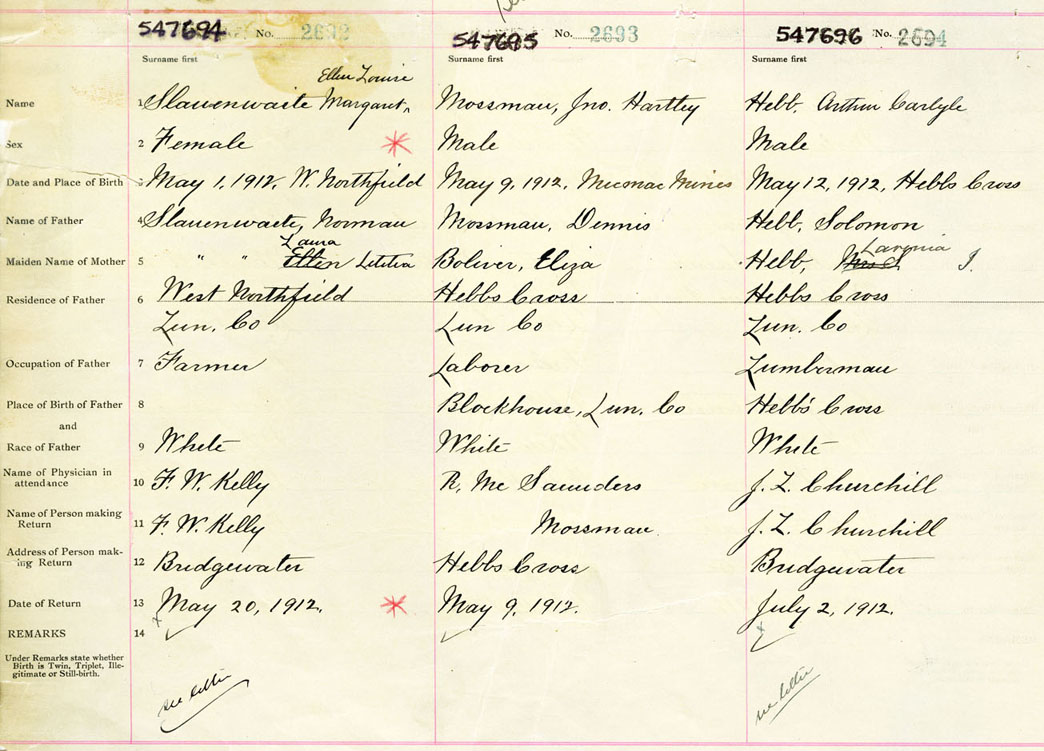 547694 No. 2692 547695 No. 2693 547696 No. 2694
Surname first Surname first Surname first
Ellen Louise
Name 1 Slauenwaite Margaret, Mossman, Jno. Hartley Hebb, Arthur Carlyle
Sex 2 Female Male Male
Date and Place of Birth 3 May 1, 1912, W. Northfield May 9, 1912, Micmac Mines May 12, 1912, Hebbs Cross
Name of Father 4 Slauenwaite, Norman Mossman, Dennis Hebb, Solomon
Laura Lavinia
Maiden Name of Mother 5 " " Ellen Letitia Boliver, Eliza Hebb, Mrs S J.
Residence of Father 6 West Northfield Hebbs Cross Hebbs Cross
Lun. Co Lun Co Lun. Co
Occupation of Father 7 Farmer Laborer Lumberman
Place of Birth of Father 8 Blockhouse, Lun. Co Hebb's Cross
and
Race of Father 9 White White White
Name of Physician in
attendance 10 F. W. Kelly R. Mc Saunders J. L. Churchill
Name of Person making
Return 11 F. W. Kelly Mossman. J. L. Churchill
Address of Person mak-
ing Return 12 Bridgewater Hebbs Cross Bridgewater
Date of Return 13 May 20, 1912. May 9, 1912. July 2, 1912.
REMARKS 14
Under Remarks state whether
Birth is Twin, Triplet, Ille-
gitimate or Still-birth.
see letter see letter